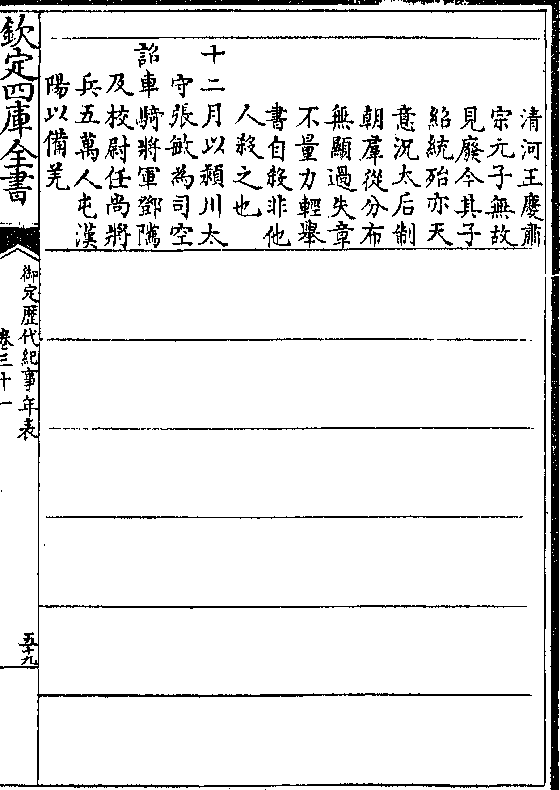 清河王慶肅
宗元子無故
見廢今其子
紹統殆亦天
意況太后制
朝羣從分布
無顯過失章
不量力輕舉
書自殺非他
人殺之也
十二月以潁川太
守張敏為司空
詔車騎將軍鄧隲
及校尉任尚將
兵五萬人屯漢
陽以備羌
欽定四庫全書
御定歷代紀事年表
卷三十一
五十九